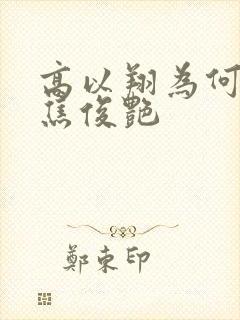 高以翔為何
焦俊艷
鄭東印